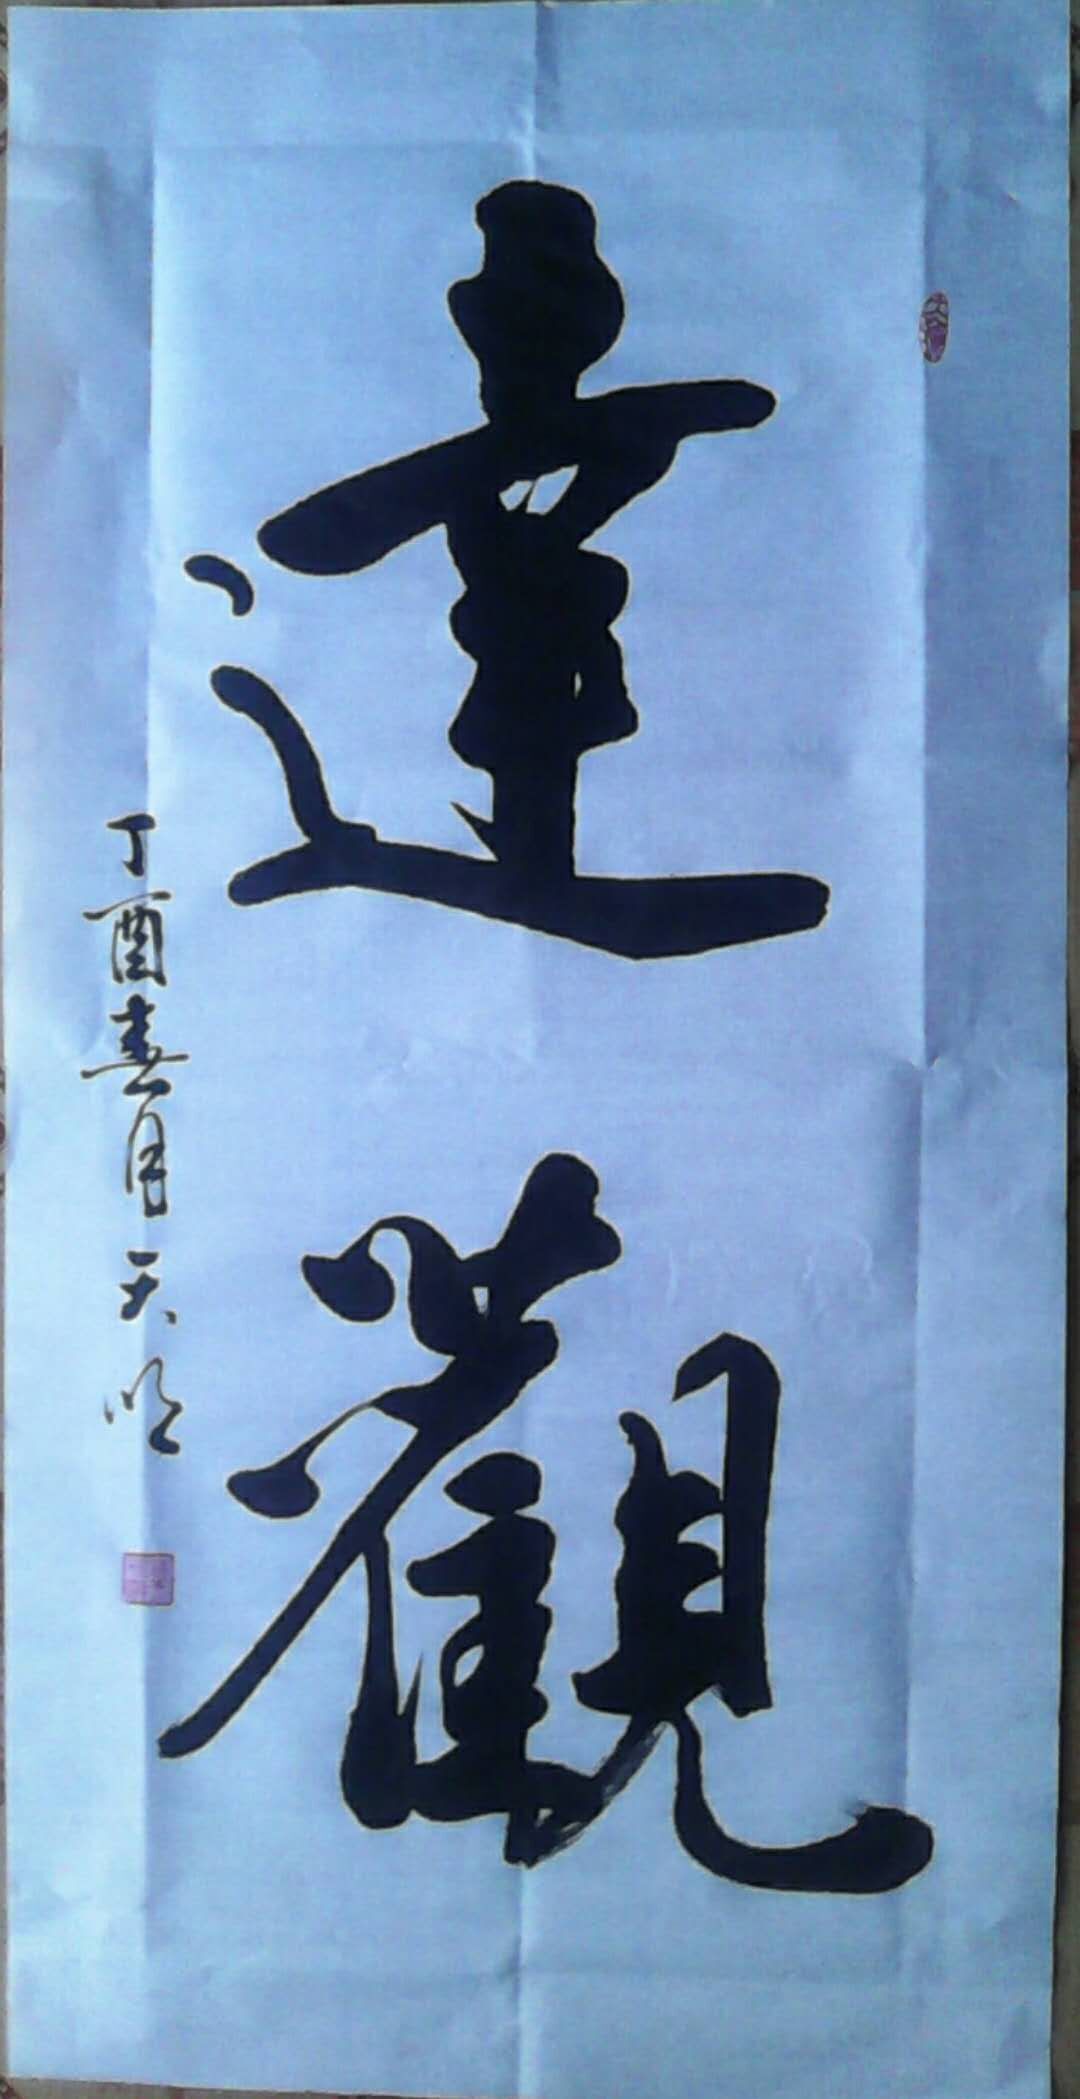 達觀
丁酉春月天明